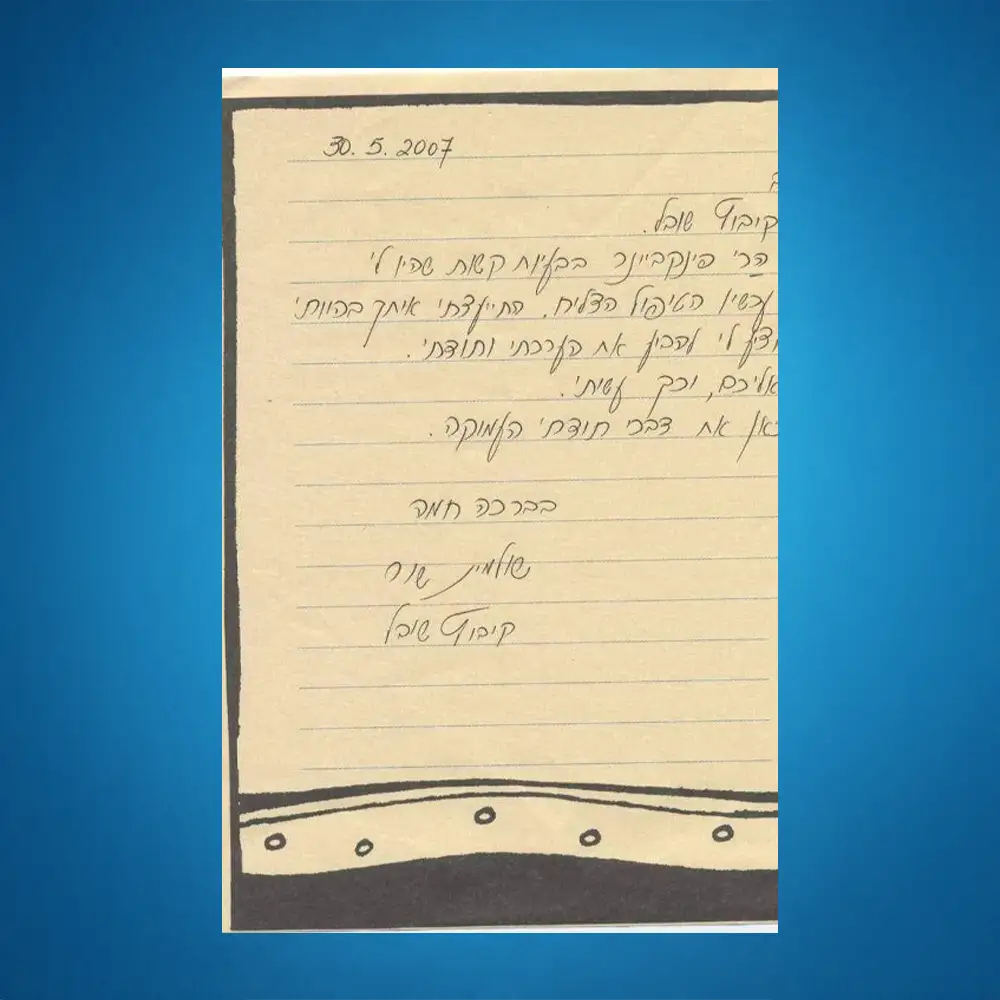 30.5.2007
קיבוץ שובל.
הר' פינקביינר בבעיות קשות שהיו לי
עכשיו הטיפול הצליח. התייעצתי איתך בהיותי
לי להביע את הערכתי ותודתי.
אליכם, וכך עשיתי.
את דברי תודתי העמוקה.
בברכה חמה
שולמית שור
קיבוץ שובל